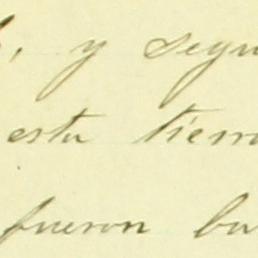 , y segu
esta tierra
fueron bu